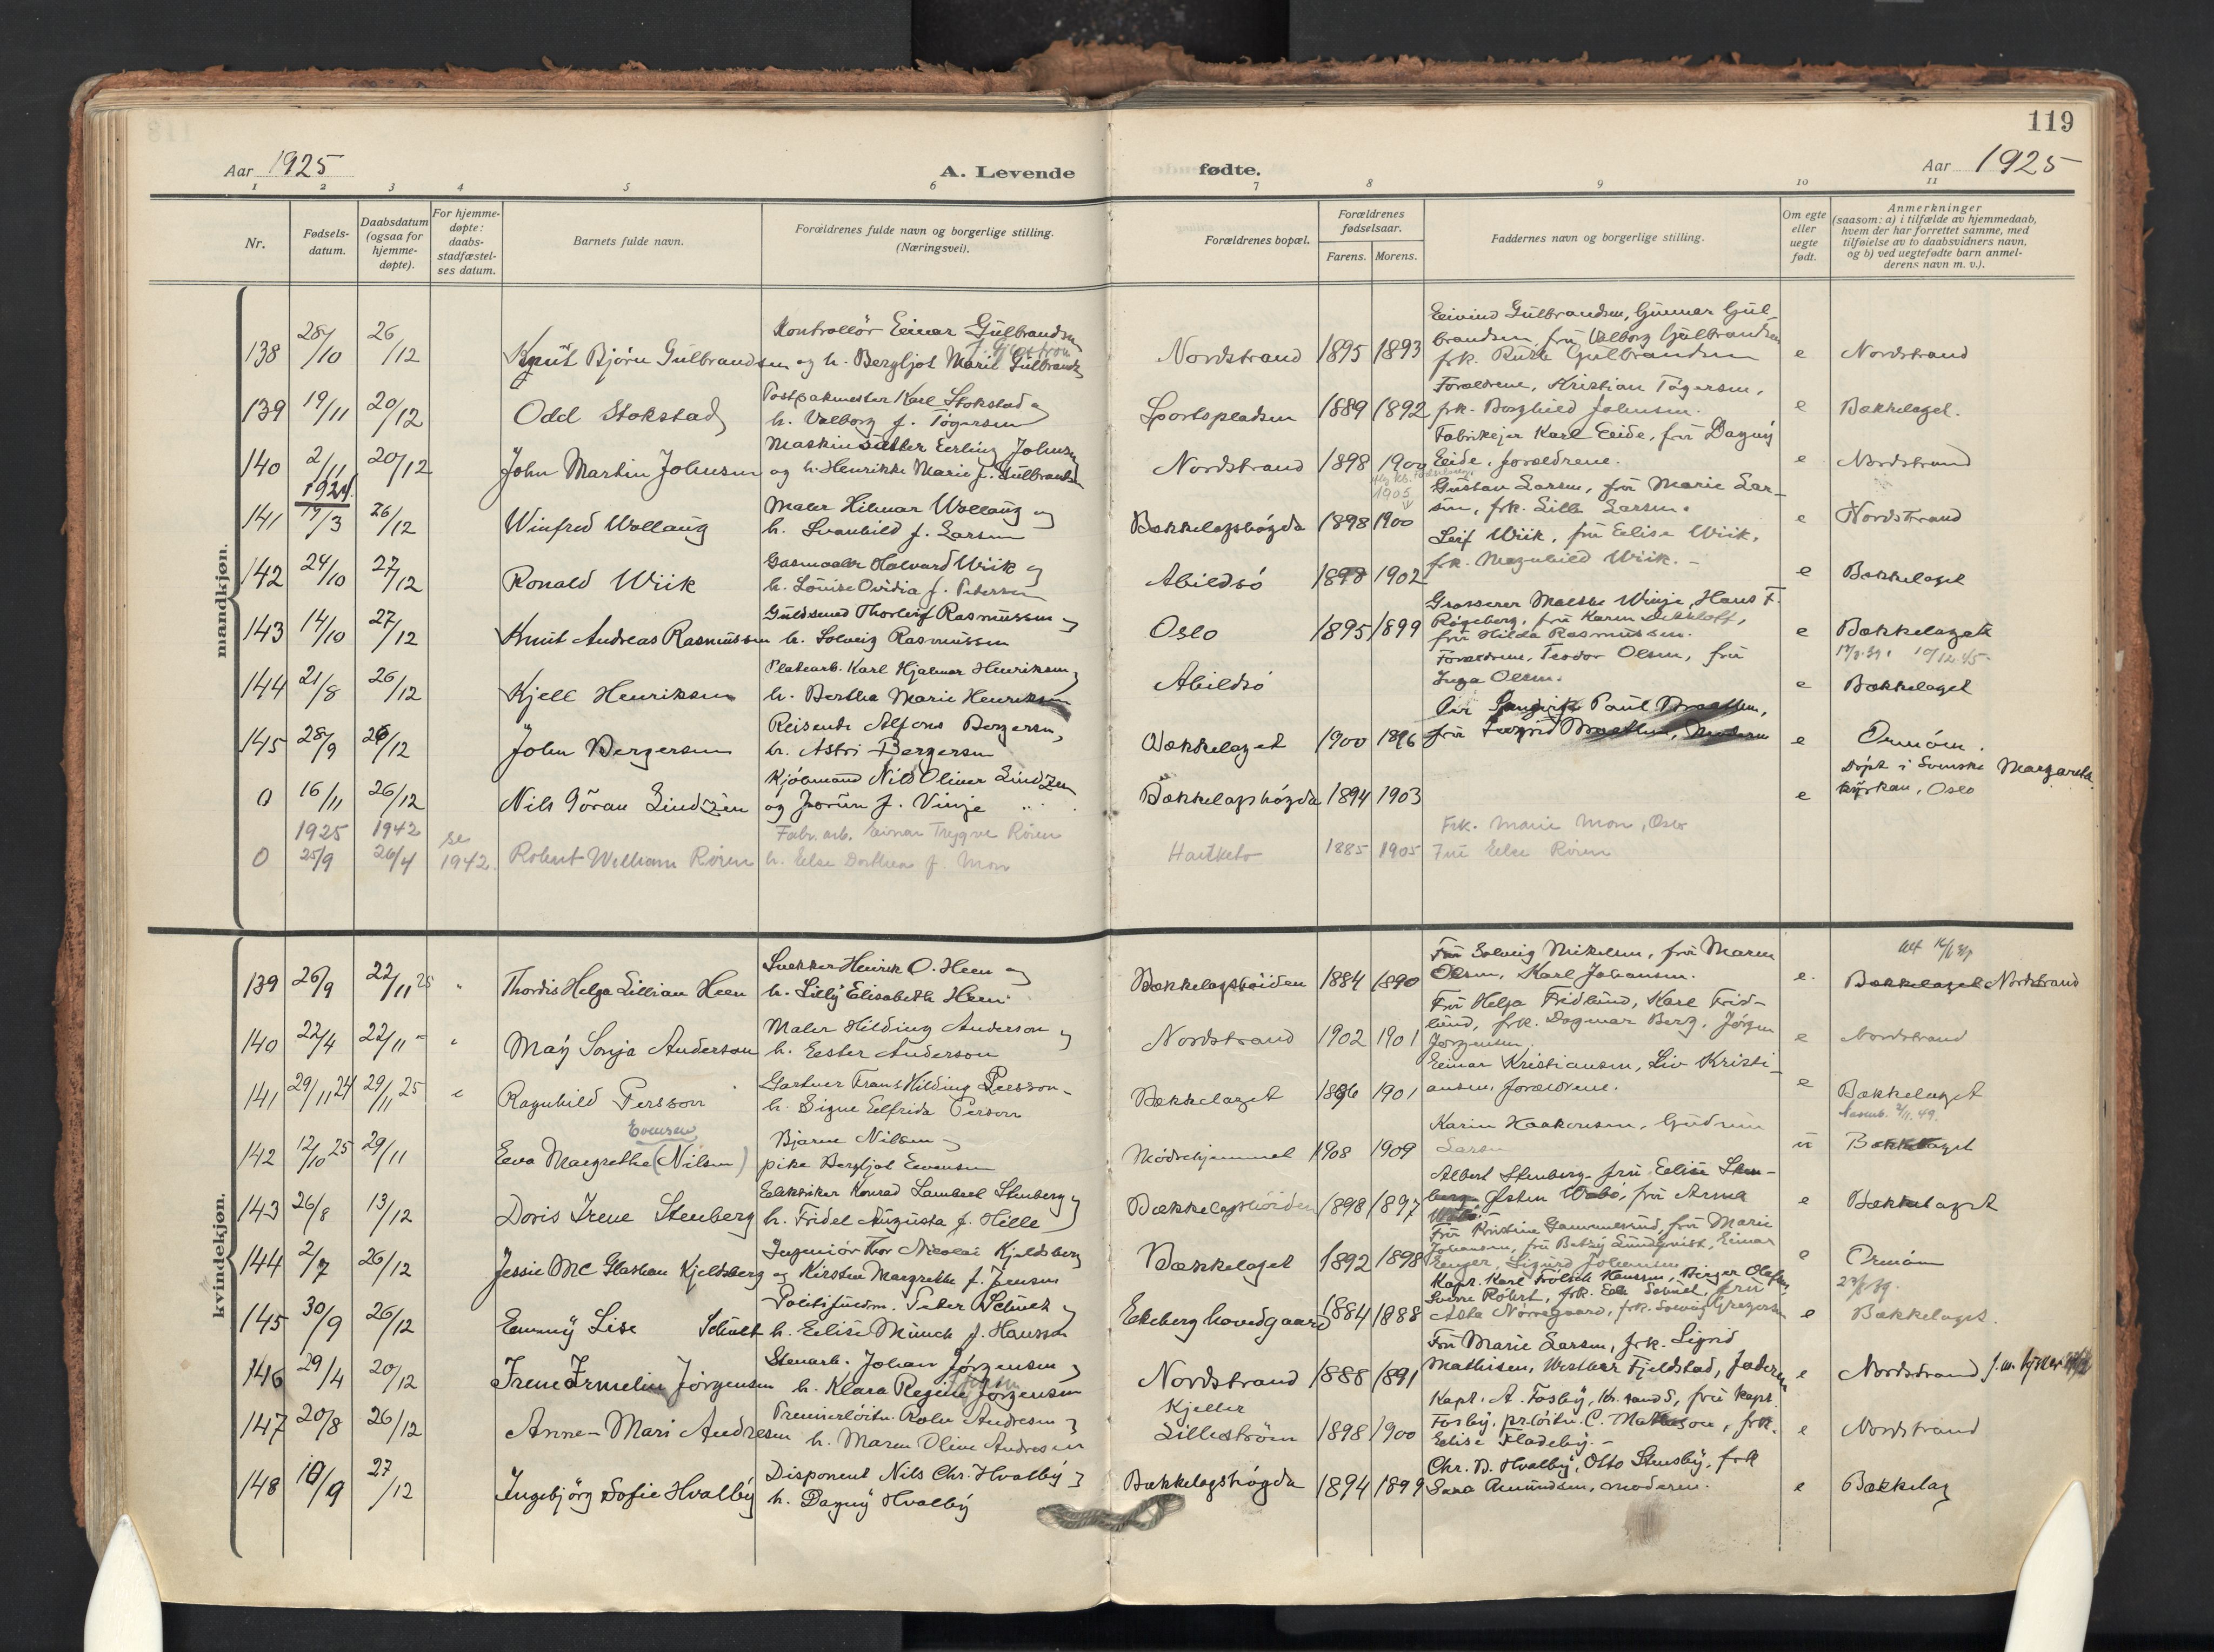 119
Aar 1925
A. Levende
fødte.
Aar 1925
1 2 3 4 5 6 7 8 9 10 11
Nr.
Fødsels-
datum.
Daabsdatum
(ogsaa for
hjemme-
døpte).
For hjemme-
døpte:
daabs-
stadfæstel-
ses datum.
Barnets fulde navn.
Forældrenes fulde navn og borgerlige stilling.
(Næringsvei).
Forældrenes bopæl.
Forældrenes
fødselsaar.
Farens. Morens.
Faddernes navn og borgerlige stilling.
Om egte
eller
uegte
født.
Anmerkninger
(saasom: a) i tilfælde av hjemmedaab,
hvem der har forrettet samme, med
tilføielse av to daabsvidners navn,
og b) ved uegtefødte barn anmel-
derens navn m. v.).
mandkjøn.
138 28/10 26/12 Knut Bjørn Gulbrandsen
Kontrollör Einar Gulbrandsen
og h. Bergljot Marie Gulbrands
Nordstrand 1895 1893
Eivind Gulbrandsen, Gunnar Gul-
brandsen, frü Valborg Gulbrandsen
frk. Ruth Gulbrandsen
e Nordstrand
139 19/11 20/12 Odd Stokstad
Postpakmester Karl Stokstad og
h. Valborg f. Tögersen
Sportspladsen 1889 1892
Forældrene, Kristian Tögersen,
frk. Borghild Johnsen.
e Bækkelaget.
140 2/11 20/12 John Martin Johnsen
Maskinsætter Erling Johnsen
og h. Henrikke Marie f. Gulbrandsen
Nordstrand 1898 1900
Fabrikejer Karl Eide, frü Dagny
Eide, forældrene.
e Nordstrand
1924
141 17/3 26/12 Winfred Wollaug
Maler Hilmar Wollaug og
h. Svanhild f. Larsen
Bækkelagshøgda 1898 1900
1905
Gustav Larsen, frü Marie Lar-
sen, frk. Lilli Larsen.
e Nordstrand
142 24/10 27/12 Ronald Wiik
Gasmaaler Halvard Wiik og
h. Louise Ovidia f. Petersen
Abildsö 1898 1902
Leif Wiik, frü Elise Wiik,
frk. Magnhild Wiik.
e Bækkelaget
143 14/10 27/12 Knut Andreas Rasmussen
Guldsmed Thorleif Rasmussen og
h. Solveig Rasmussen
Oslo 1895 1899
Grosserer Malthe Winje, Hans F.
Rögeberg, frü Karen Ditloff,
frü Hilda Rasmussen.
e Bækkelaget
144 21/8 26/12 Kjell Henriksen
Platearb. Karl Hjalmar Henriksen og
h. Bertha Marie Henriksen
Abildsö
Forældrene, Teodor Olsen, frü
Inga Olsen.
e Bækkelaget
145 28/9 26/12 John Bergersen
Reisende Alfons Bergersen,
h. Astri Bergersen
Bækkelaget 1900 1896
Per Paul Braathen,
frü
e Ormöen.
0 16/11 26/12 Nils Göran Lindzén
Kjöbmand Nils Oliver Lindzen
og Jorun f. Vinje
Bækkelagshögda 1894 1903
e Döpt i Svenske Margareta
kyrkan, Oslo
0 1925 25/9 1942 26/4 se 1942. Robert William Rören
Fabr. arb. Einar Trygve Rören
h. Else Dorthea f. Mon
Hauketo 1885 1905
Frk. Marie Mon, Oslo
Frü Else Rören
kvindekjøn.
139 26/9 22/11 25 Thordis Helga Lillian Heen
Snekker Henrik O. Heen og
h. Lilly Elisabeth Heen
Bækkelagshöiden 1884 1890
Frü Solveig Mikelsen, frü Maren
Olsen, Karl Johansen.
e. Bækkelaget Nordstrand
140 22/4 22/11 Maÿ Sonja Anderson
Maler Hilding Anderson og
h. Ester Anderson
Nordstrand 1902 1901
Frü Helga Fridlund, Karl Frid-
lund, frk. Dagmar Berg, Jörgen
Jörgensen.
e Nordstrand
141 29/11 24 29/11 25 Ragnhild Persson
Gartner Frans Hilding Persson
h. Signe Elfrida Person
Bækkelaget 1896 1901
Einar Kristiansen, Liv Kristi-
ansen, forældrene.
e Bækkelaget
142 12/10 25 29/11 Eva Margrethe (Nilsen) Evensen
Bjarne Nilsen og
pike Bergljot Evensen
Mödrehjemmet 1908 1909
Karin Haakonsen, Gudrun
Larsen
u Bækkelaget
143 26/8 13/12 Doris Irene Stenberg
Elektriker Konrad Lambert Stenberg og
h. Fridel Augusta f. Hille
Bækkelagshöiden 1898 1897
Albert Stenberg, frü Elise Sten-
berg, Östen Webo, frü Anna
e Bækkelaget
144 2/7 26/12 Jessie Mc Glashan Kjeldsberg
Ingeniör Thor Nicolai Kjeldsberg
og Kirsten Margrethe f. Jensen
Bækkelaget 1892 1898
Frü Kristine Gammelsrud, frü Marie
Johansen, frü Betsy Lundqvist, Einar
Enger, Sigurd Johansen
e Ormöen
145 30/9 26/12 Emmÿ Lise Schult
Politifuldm. Peter Schult og
h. Elise Munch f. Hansson
Ekeberg hovedgaard 1884 1888
Kapt. Karl Frölich Hanssen, Birger Olafsen
e Bækkelaget.
146 29/4 20/12 Irene Irmelin Jörgensen
Stenarb. Johan Jörgensen og
h. Klara Regine Jörgensen
Nordstrand 1888 1891
Frü Marie Larsen, frk. Sigrid
Mathisen, Westbar Fjeldstad, faderen
e Nordstrand
147 20/8 26/12 Anne-Mari Andresen
Premierlöitn. Rolv Andresen og
h. Maren Oline Andresen
Kjeller
Lilleström 1898 1900
Kapt. A. Fosbÿ, Kr.sand S, frü kapt.
Fosbÿ, pr.löitn. C. Matheson, frk.
Elise Fladebÿ.
e Nordstrand
148 10/9 27/12 Ingebjörg Sofie Hvalbÿ
Disponent Nils Chr. Hvalbÿ og
h. Dagnÿ Hvalbÿ
Bækkelagshögda 1894 1899
Chr. B. Hvalbÿ, Otto Stensbÿ, frk
Sara Amundsen, moderen.
e Bækkelag